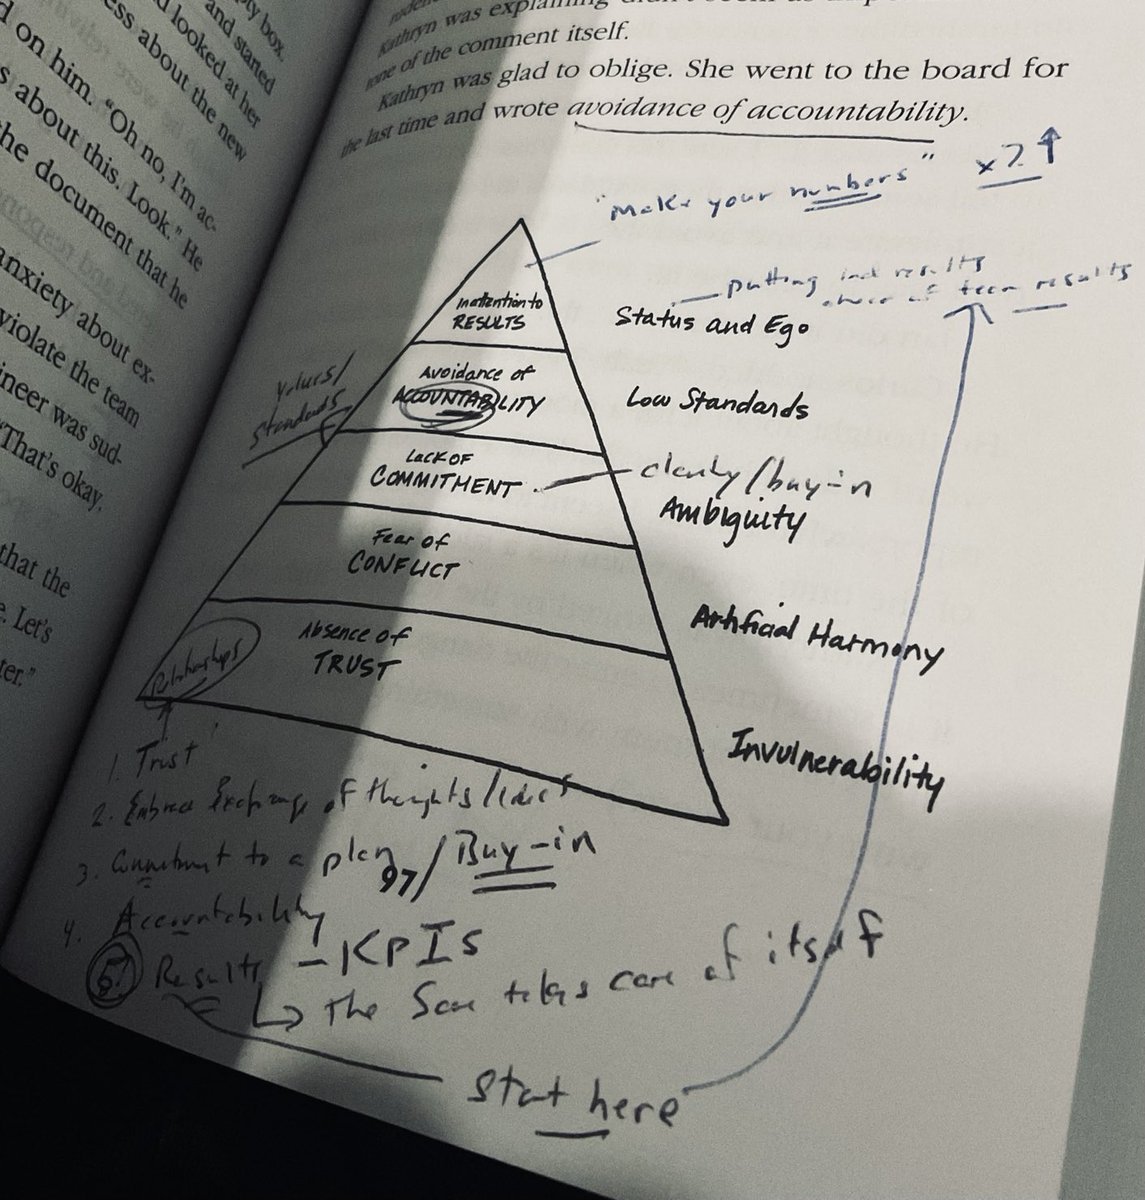 ty box.
and started
d looked at her
ess about the new
d on him. "Oh no, I'm ac-
s about this. Look." He
the document that he
anxiety about ex-
violate the team
ineer was sud-
"That's okay.
that the
e. Let's
ter."
Kathryn was explaining
tone of the comment itself.
Kathryn was glad to oblige. She went to the board for
the last time and wrote avoidance of accountability.
"make your numbers" x2↑
putting ind results
team results
Inattention to
RESULTS
Status and Ego
Avoidance of
ACCOUNTABILITY
Low Standards
values/
standards
Lack of
COMMITMENT
clarity/buy-in
Ambiguity
Fear of
CONFLICT
Artificial Harmony
Absence of
TRUST
Relationships
Invulnerability
1. Trust
2. Embrace Exchange of thoughts/ideas
3. Commitment to a plan/Buy-in
97
4. Accountability
5. Results - KPIs
↳ The Score takes care of itself
Start here